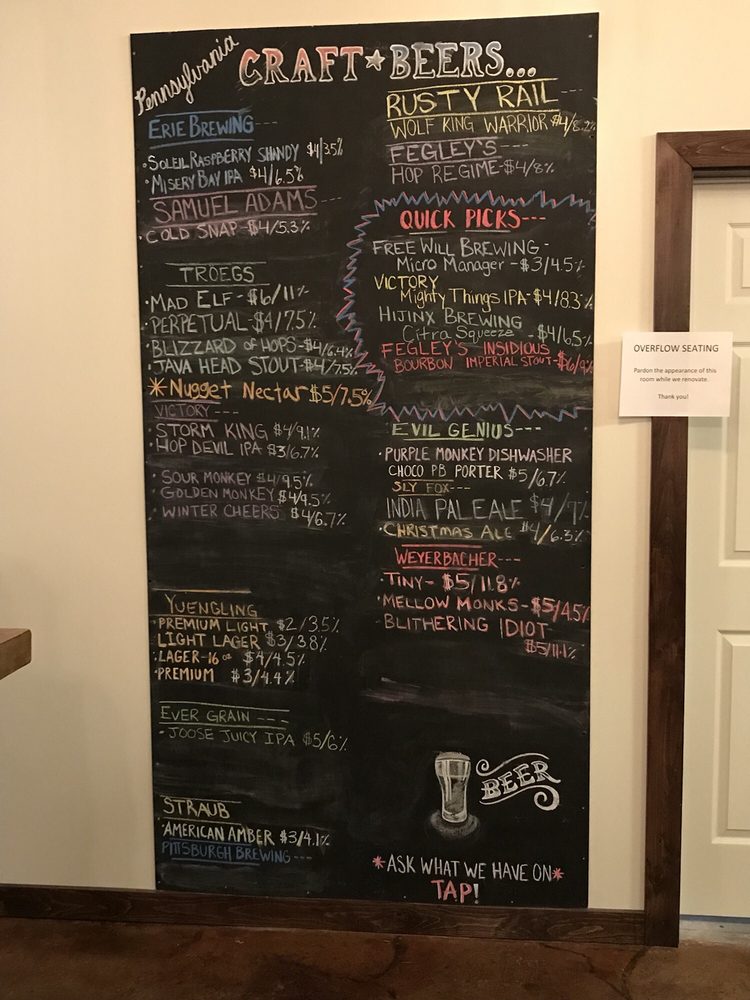 Pennsylvania
CRAFT★BEERS...
ERIE BREWING---
•SOLEIL RASPBERRY SHANDY $4/3.5%
•MISERY BAY IPA $4/6.5%
SAMUEL ADAMS---
•COLD SNAP-$4/5.3%
TROEGS
•MAD ELF-$6/11%
•PERPETUAL-$4/7.5%
•BLIZZARD OF HOPS-$4/6.4%
•JAVA HEAD STOUT-$4/7.5%
*Nugget Nectar $5/7.5%
VICTORY---
•STORM KING $4/9.1%
•HOP DEVIL IPA $3/6.7%
•SOUR MONKEY $4/9.5%
•GOLDEN MONKEY $4/9.5%
•WINTER CHEERS $4/6.7%
YUENGLING
•PREMIUM LIGHT $2/3.5%
LIGHT LAGER $3/3.8%
•LAGER-16oz $4/4.5%
•PREMIUM $3/4.4%
EVER GRAIN----
•JOOSE JUICY IPA $5/6%
STRAUB
•AMERICAN AMBER $3/4.1%
PITTSBURGH BREWING---
RUSTY RAIL---
WOLF KING WARRIOR $4/8.2%
FEGLEY'S----
HOP REGIME-$4/8%
QUICK PICKS---
FREE WILL BREWING-
Micro Manager-$3/4.5%
VICTORY
Mighty Things IPA-$4/8.3%
HIJINX BREWING
Citra Squeeze -$4/6.5%
FEGLEY'S INSIDIOUS
BOURBON IMPERIAL STOUT-
EVIL GENIUS---
•PURPLE MONKEY DISHWASHER
CHOCO PB PORTER $5/6.7%
SLY FOX---
INDIA PALE ALE $4/7%
•CHRISTMAS ALE $4/6.3%
WEYERBACHER---
•TINY-$5/11.8%
•MELLOW MONKS-$5/4.5%
•BLITHERING IDIOT-
$5/11.1%
BEER
*ASK WHAT WE HAVE ON*
TAP!
OVERFLOW SEATING
Pardon the appearance of this
room while we renovate.
Thank you!